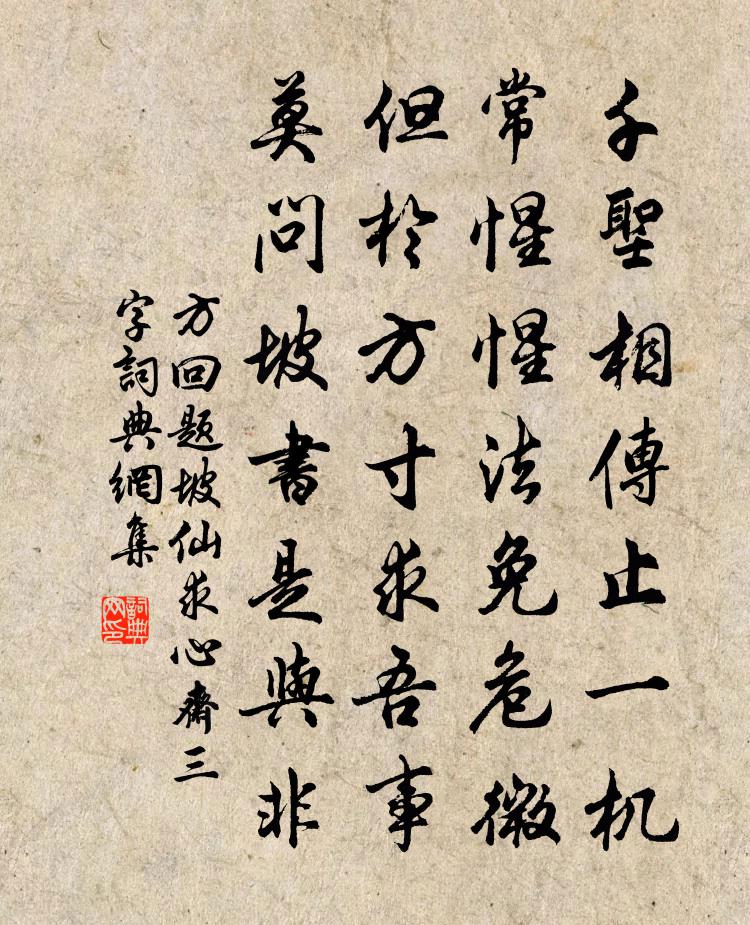 千聖相傳止一机
常惺惺法免危微
但於方寸求吾事
莫問坡書是與非
方回题坡仙求心齋三
字詞典網集
詞典
网印